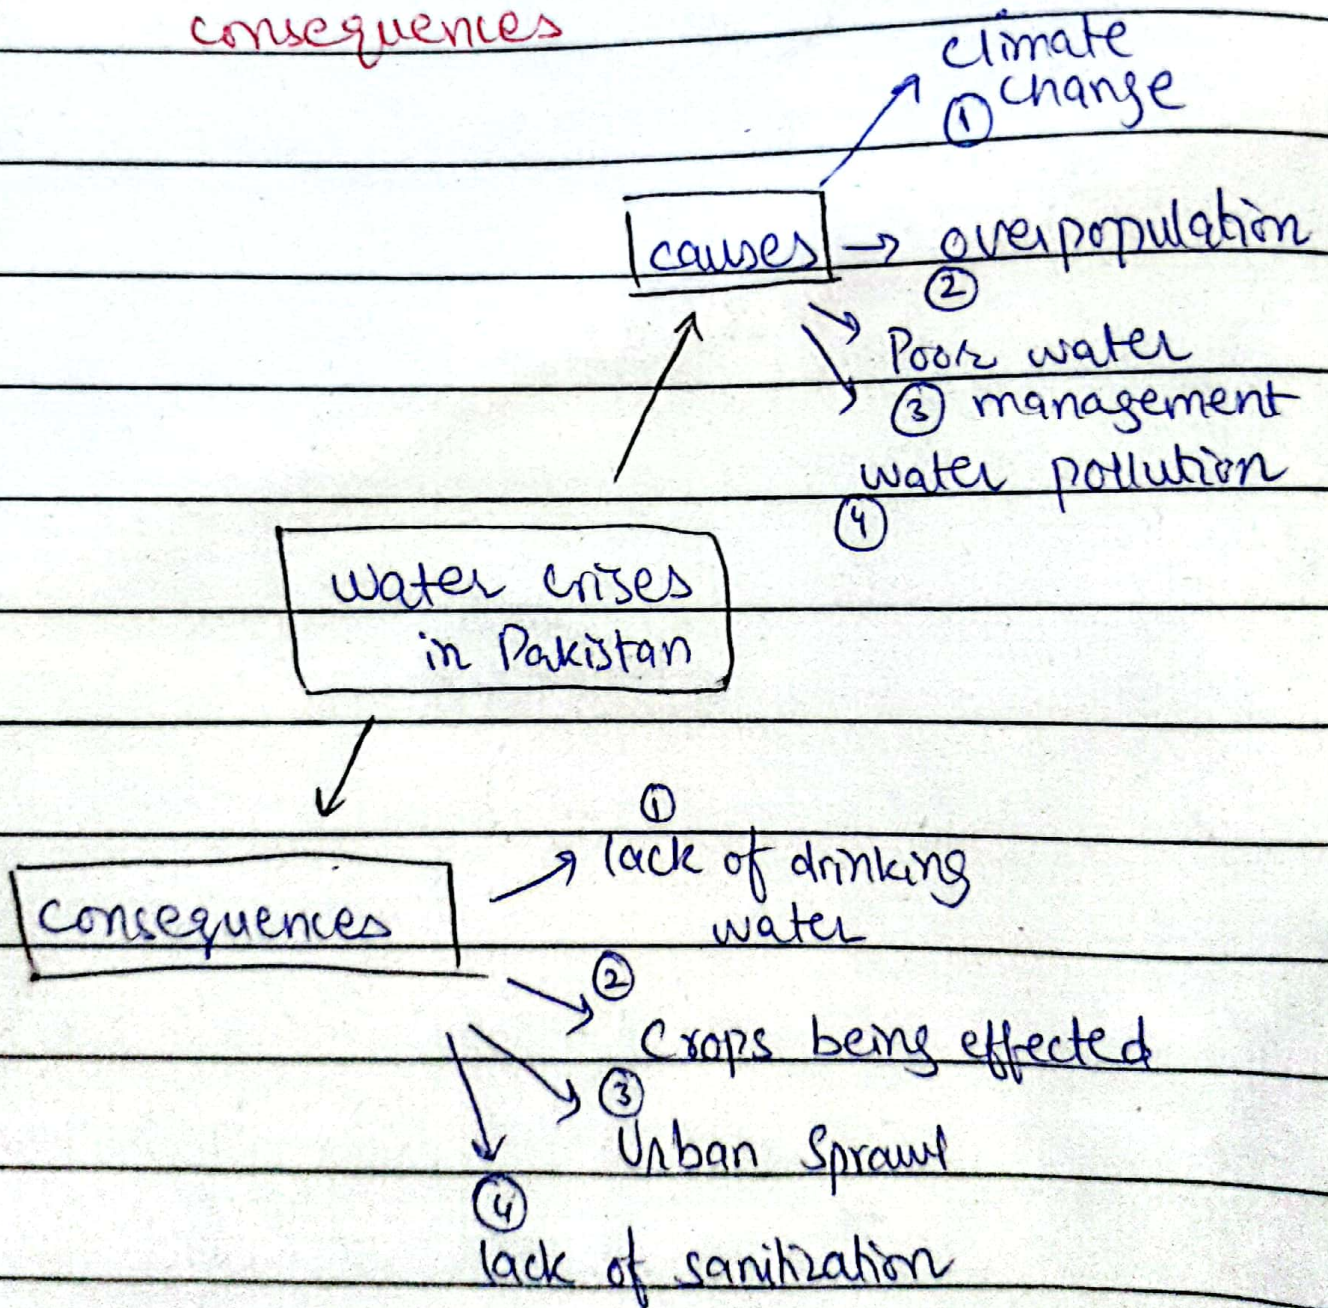 consequences
climate
change
①
causes → overpopulation
②
Poor water
③ management
water pollution
④
water crises
in Pakistan
①
lack of drinking
water
consequences
②
Crops being effected
③
Urban Sprawl
④
lack of sanitization